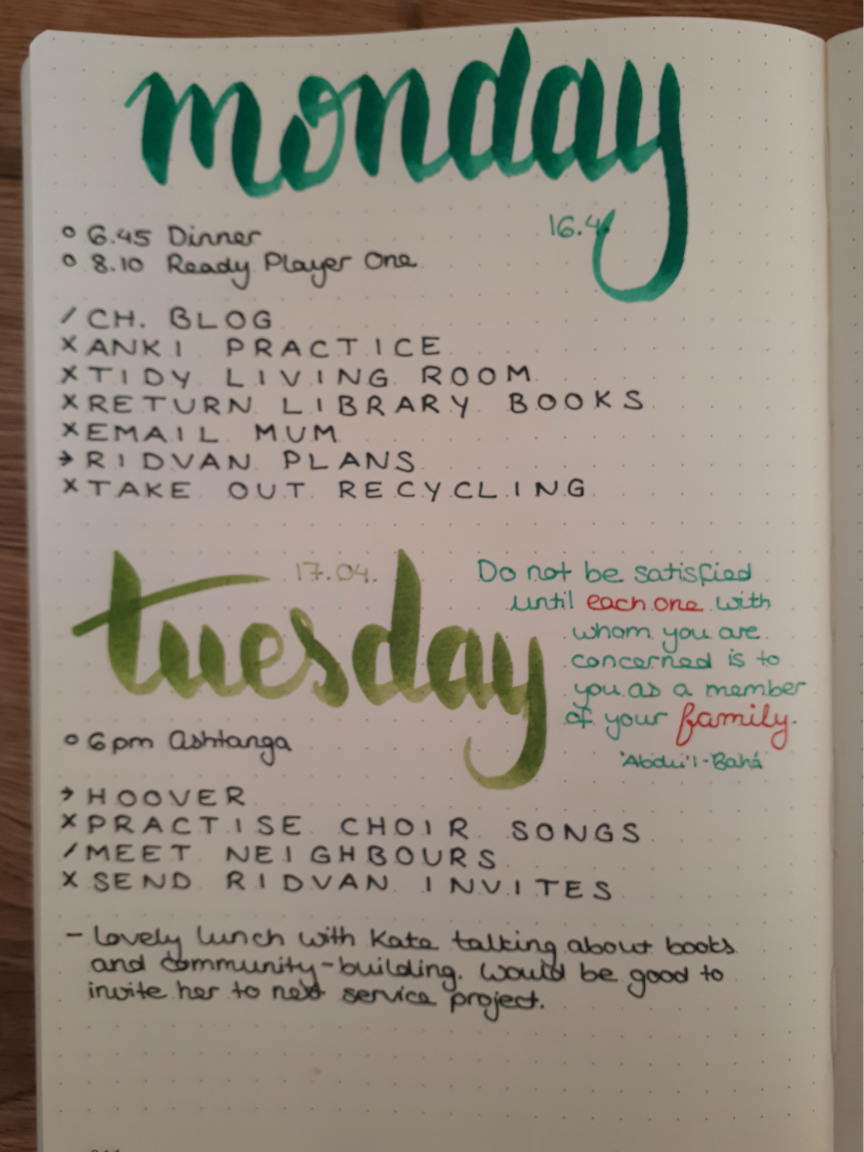 monday
16.4.
o 6.45 Dinner
o 8.10 Ready Player One
/ CH. BLOG
x ANKI PRACTICE
x TIDY LIVING ROOM
x RETURN LIBRARY BOOKS
x EMAIL MUM
→ RIDVAN PLANS
x TAKE OUT RECYCLING
tuesday
17.04.
Do not be satisfied
until each one with
whom you are
concerned is to
you as a member
of your family.
'Abdu'l-Bahá
o 6pm Ashtanga
→ HOOVER
x PRACTISE CHOIR SONGS
/ MEET NEIGHBOURS
x SEND RIDVAN INVITES
- Lovely lunch with Kate talking about books
and community-building. Would be good to
invite her to next service project.